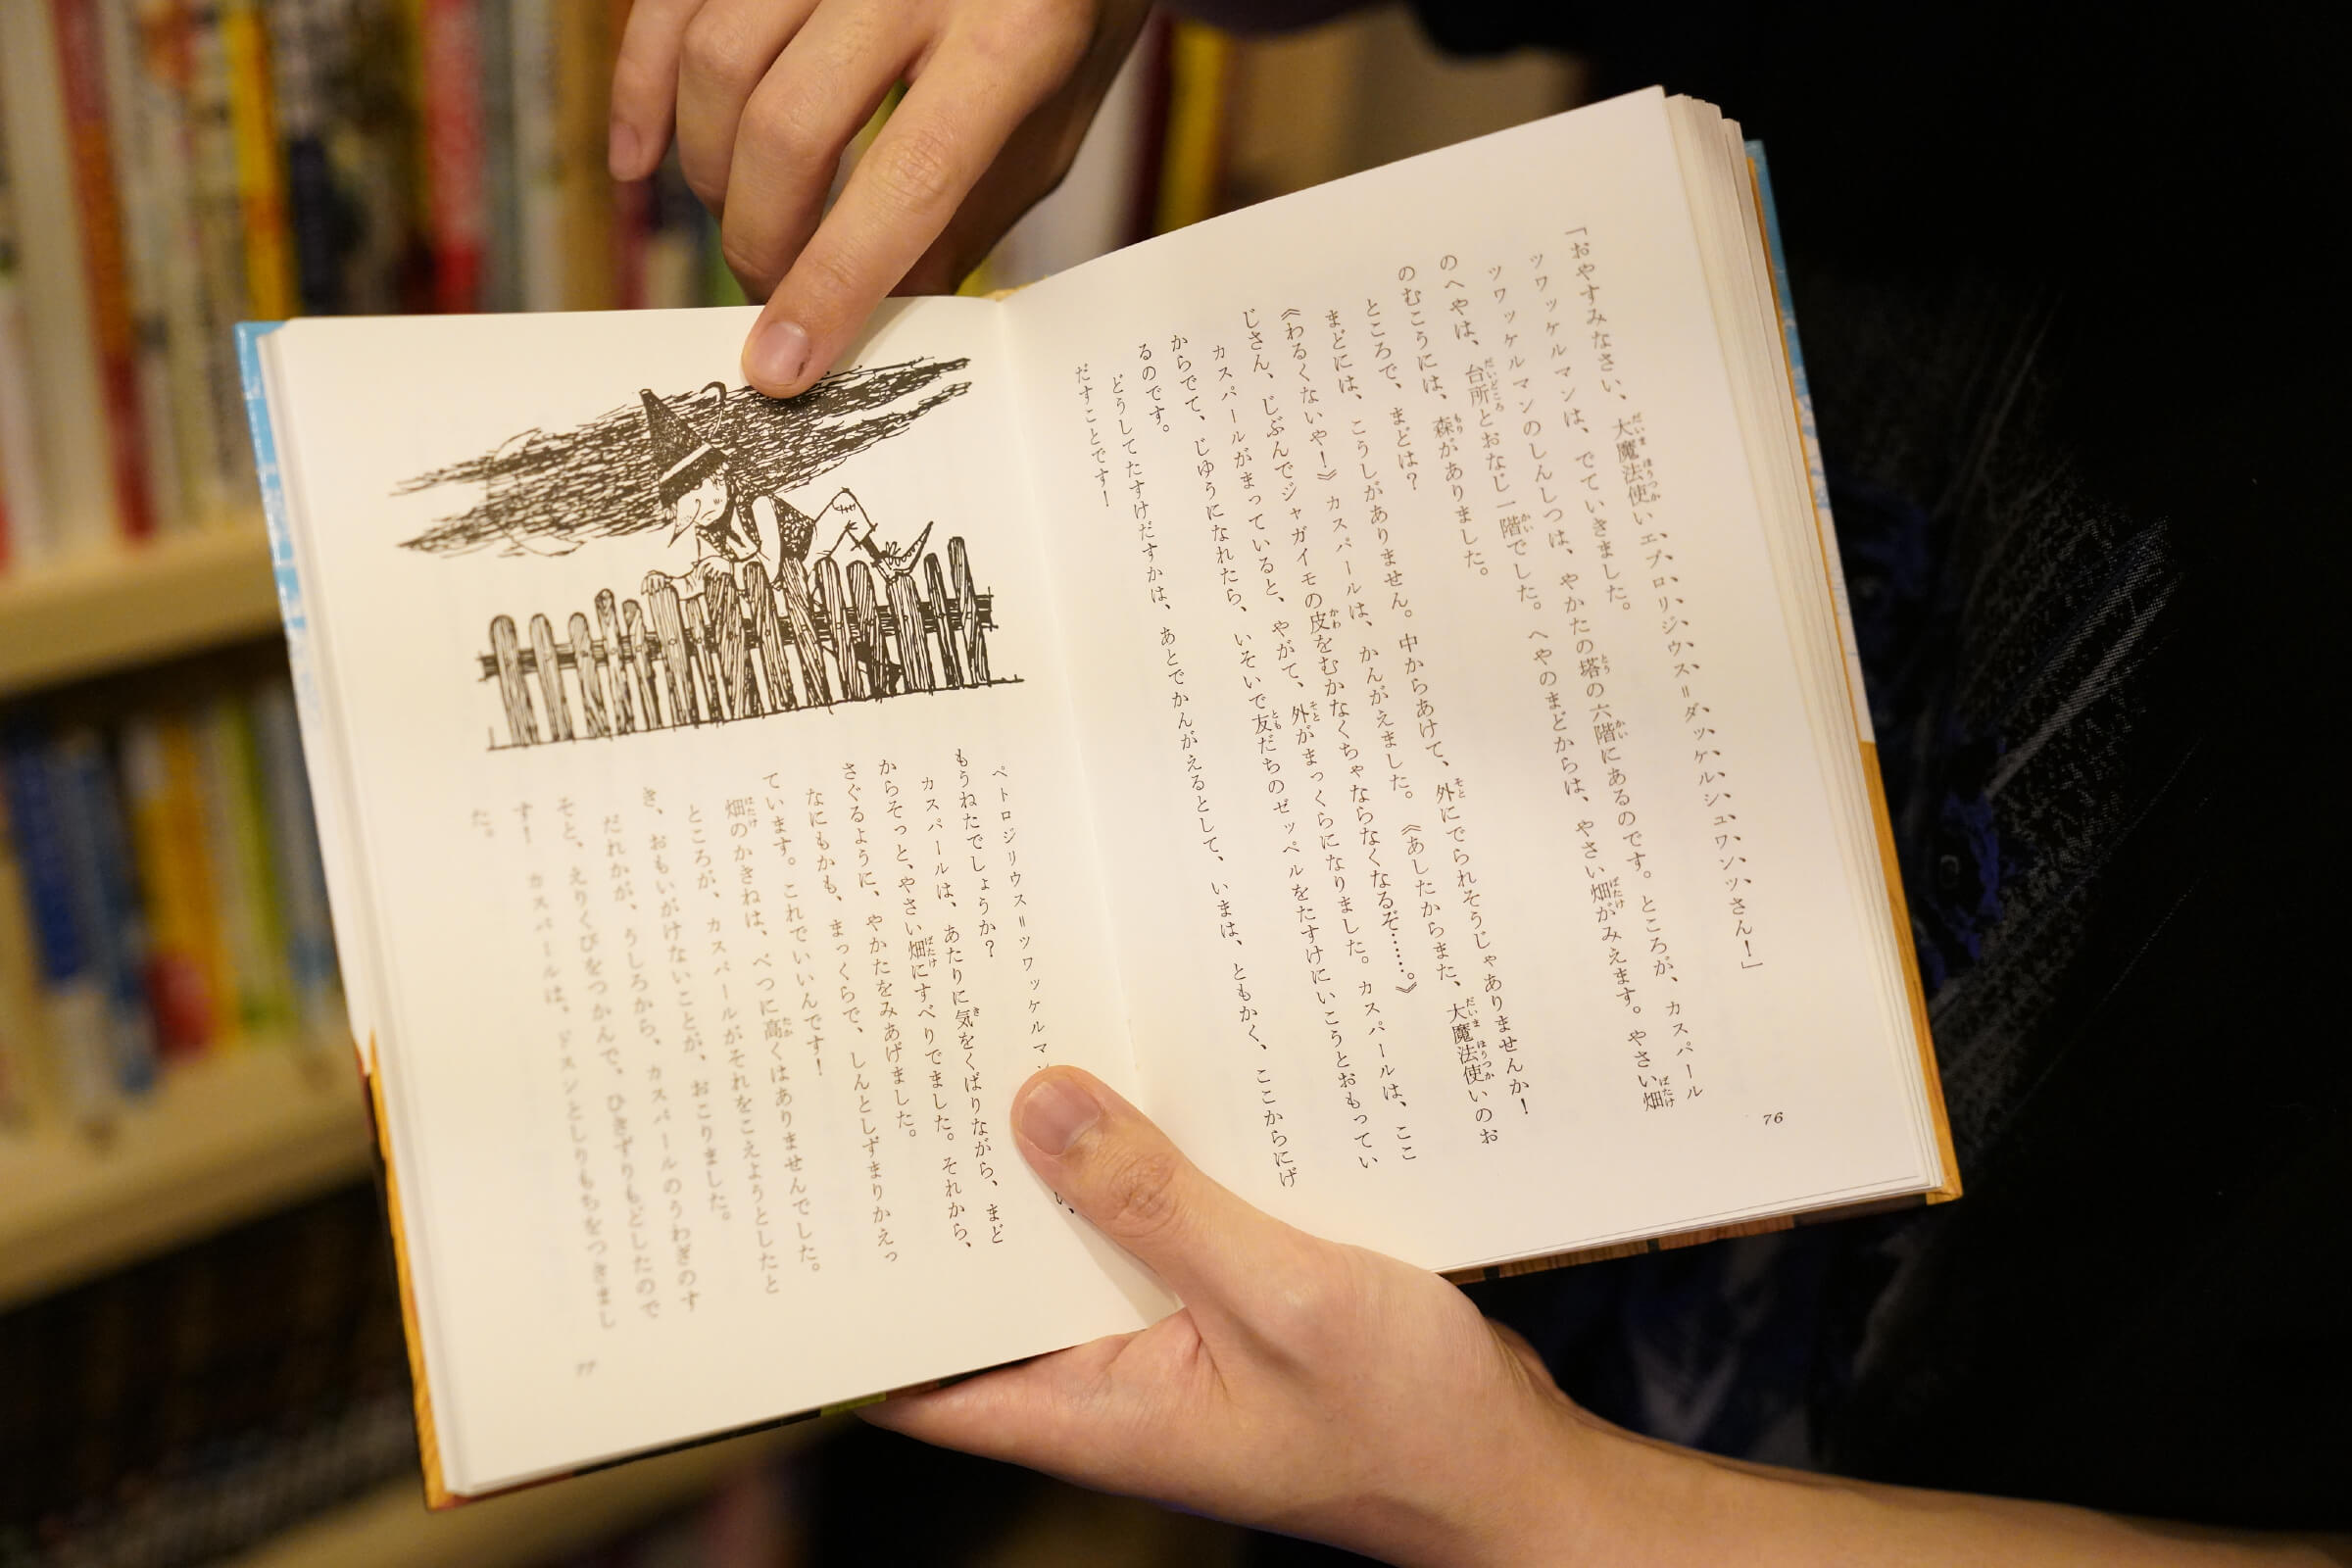 「おやすみなさい、大魔法使いエプロリジウス=ダッケルシュワンツさん!」
ツワッケルマンは、でていきました。
ツワッケルマンのしんしつは、やかたの塔の六階にあるのです。ところが、カスパール
のへやは、台所とおなじ一階でした。へやのまどからは、やさい畑がみえます。やさい畑
のむこうには、森がありました。
ところで、まどは?
まどには、こうしがありません。中からあけて、外にでられそうじゃありませんか!
《わるくないや!》カスパールは、かんがえました。《あしたからまた、大魔法使いのお
じさん、じぶんでジャガイモの皮をむかなくちゃならなくなるぞ……。》
カスパールがまっていると、やがて、外がまっくらになりました。カスパールは、ここ
からでて、じゆうになれたら、いそいで友だちのゼッペルをたすけにいこうとおもってい
るのです。
どうしてたすけだすかは、あとでかんがえるとして、いまは、ともかく、ここからにげ
だすことです!
76
ペトロジリウス=ツワッケルマン
い、
もうねたでしょうか?
カスパールは、あたりに気をくばりながら、まど
からそっと、やさい畑にすべりでました。それから、
さぐるように、やかたをみあげました。
なにもかも、まっくらで、しんとしずまりかえっ
ています。これでいいんです!
畑のかきねは、べつに高くはありませんでした。
ところが、カスパールがそれをこえようとしたと
き、おもいがけないことが、おこりました。
だれかが、うしろから、カスパールのうわぎのす
そと、えりくびをつかんで、ひきずりもどしたので
す! カスパールは、ドスンとしりもちをつきまし
た。
77